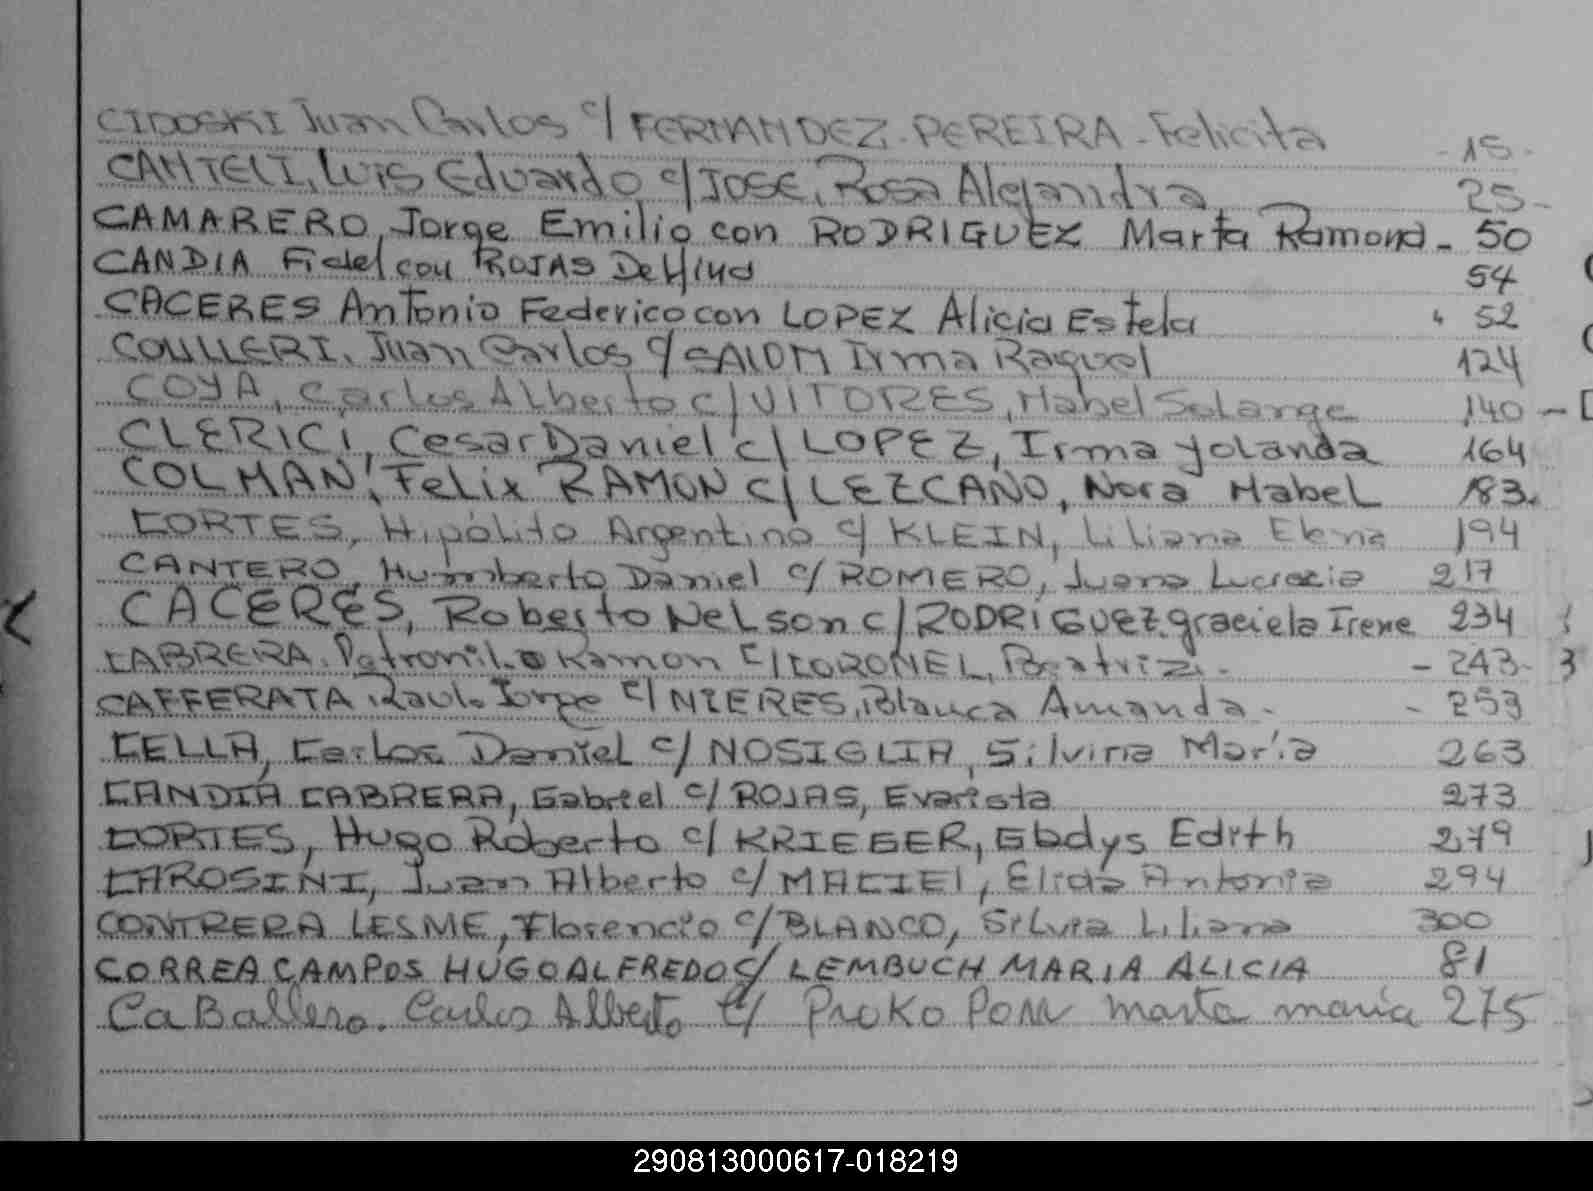 CIDOSKI Juan Carlos c/ FERNANDEZ-PEREIRA-Felicita -15-
CANTELI, Luis Eduardo c/ JOSE, Rosa Alejandra 25-
CAMARERO, Jorge Emilio con RODRIGUEZ Marta Ramona - 50
CANDIA Fidel con ROJAS Delfina 54
CACERES Antonio Federico con LOPEZ Alicia Estela 52
COULLERI, Juan Carlos c/ SALOM Irma Raquel 124
COYA, Carlos Alberto c/ VITORES, Mabel Solange 140 -
CLERICI, Cesar Daniel c/ LOPEZ, Irma Yolanda 164
COLMAN, Felix RAMON c/ LEZCANO, Nora Mabel 183.
CORTES, Hipólito Argentino c/ KLEIN, Liliana Elena 194
CANTERO, Humberto Daniel c/ ROMERO, Juana Lucrecia 217
CACERES, Roberto Nelson c/ RODRIGUEZ, graciela Irene 234
CABRERA. Petronilo Ramon c/ CORONEL, Beatriz. - 243-
CAFFERATA, Raul Jorge c/ NIERES, Blanca Amanda. - 253
CELLA, Carlos Daniel c/ NOSIGLIA, Silvina María 263
CANDIA CABRERA, Gabriel c/ ROJAS, Evarista 273
CORTES, Hugo Roberto c/ KRIEGER, Gladys Edith 279
CAROSINI, Juan Alberto c/ MACIEL, Elida Antonia 294
CONTRERA LESME, Florencio c/ BLANCO, Silvia Liliana 300
CORREA CAMPOS HUGO ALFREDO c/ LEMBUCH MARIA ALICIA 81
CaBallero. Carlos Alberto c/ Marta maria 275
290813000617-018219